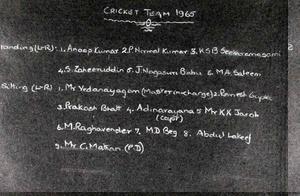 CRICKET TEAM 1965
anding (L-R): 1. Anoop Kumar 2. P. Nirmal Kumar 3. K.S.B Seetharamasami
4. S. Zaheeruddin 5. J. Nagasuri Babu 6. M.A. Saleem
Sitting (L-R) 1. Mr Vedanayagam (Master in charge) 2. Ramesh Gupte
3. Prakash Bhatt 4. Adinarayana 5 Mr K.K Jacob
(Capt)
6. M. Raghavender 7. M D Beg 8. Abdul Lateef
9. Mr. C. Matkan (P.D)